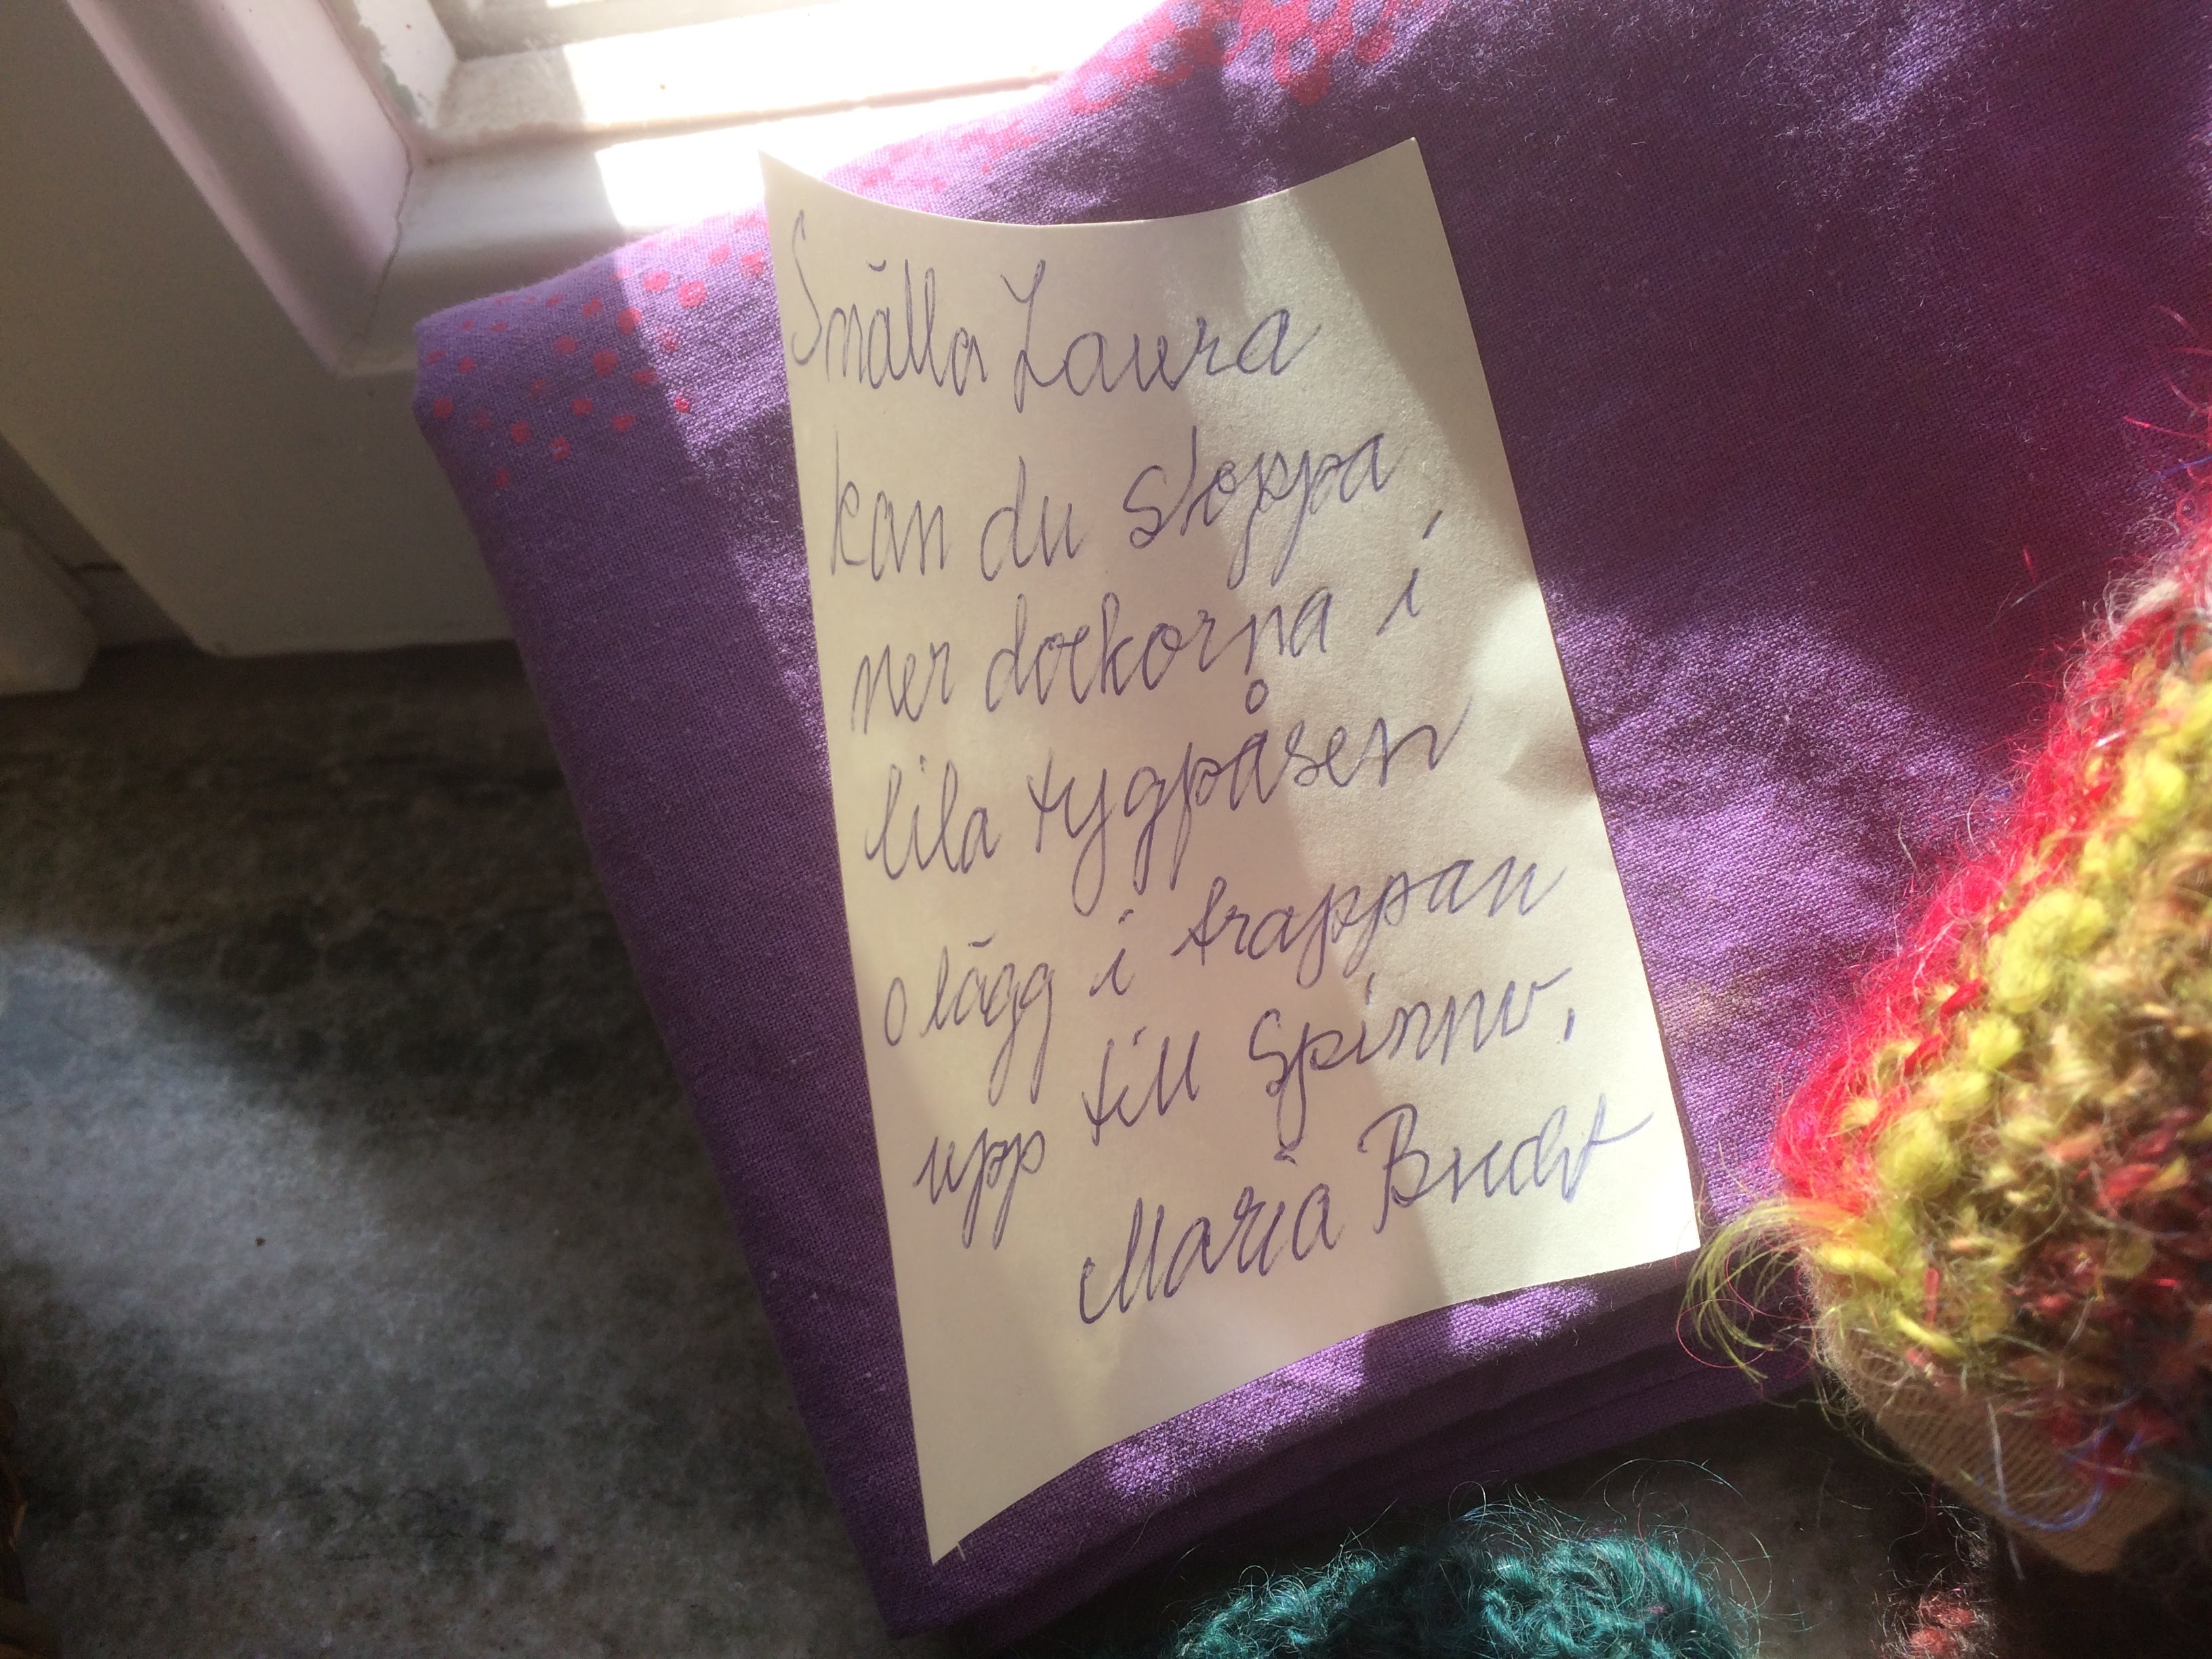 Snälla Laura
kan du stoppa
ner dockorna i
lila tygpåsen
o lägg i trappan
upp till Spinnv.
Maria